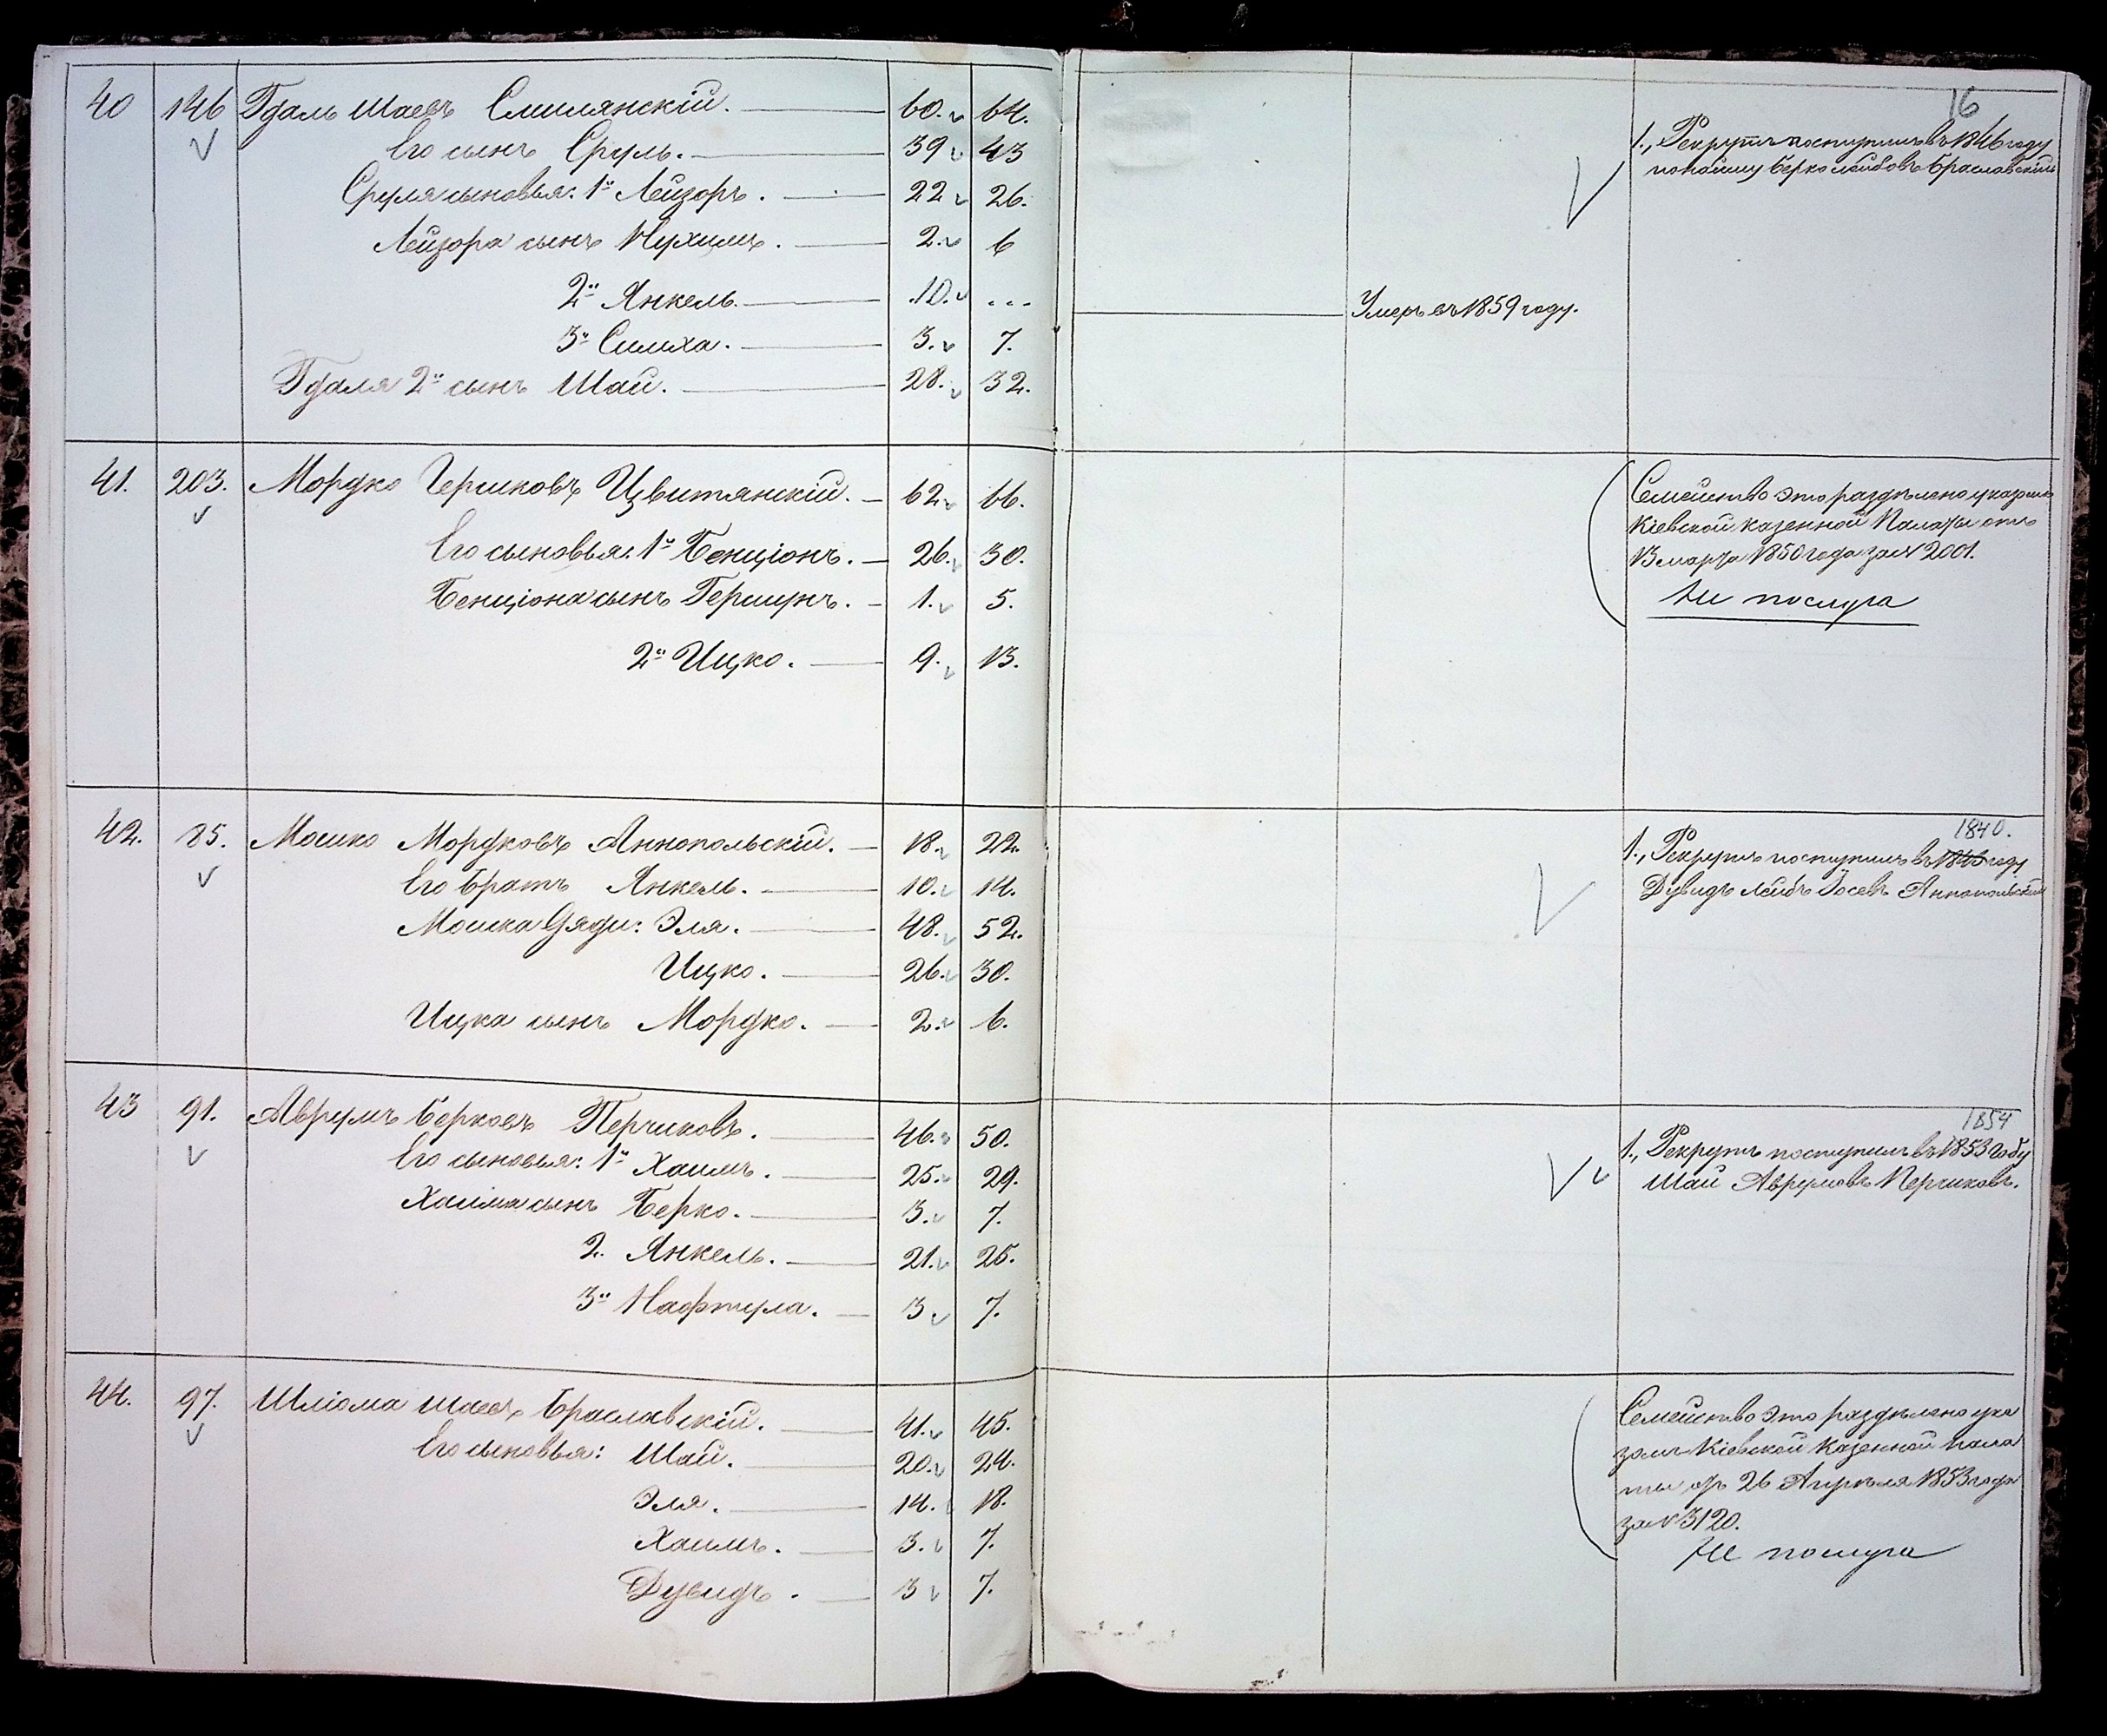 16
40 146 Гдаль Шаевъ Смилянскій. 60. 64.
Его сынъ Сруль. 39 43
Сруля сыновья: 1й Лейзоръ. 22 26.
Лейзора сынъ Нухимъ. 2. 6
2й Янкель. 10. ...
3й Симха. 3. 7.
Гдаля 2й сынъ Шай. 28. 32.
Умеръ въ 1859 году.
1., Рекрутъ поступилъ въ 1846 году
по найму Берко Лейбовъ Браславскій
41. 203. Мордко Гершковъ Цвитянскій. 62. 66.
Его сыновья: 1й Бенціонъ. 26. 30.
Бенціона сынъ Гершунъ. 1. 5.
2й Ицко. 9. 13.
Семейство это раздѣлено указомъ
Кіевской казенной Палаты отъ
13 марта 1850 года за № 2001.
42. 85. Мошко Мордковъ Аннопольскій. 18. 22.
Его братъ Янкель. 10. 14.
Мошка дяди: Эля. 48. 52.
Ицко. 26. 30.
Ицка сынъ Мордко. 2. 6.
1840.
1., Рекрутъ поступилъ въ 1843 году
Дувидъ Лейбъ Іосевъ Аннопольскій
43 91. Аврумъ Берковъ Перчиковъ. 46. 50.
Его сыновья: 1й Хаимъ. 25. 29.
Хаима сынъ Берко. 3. 7.
2. Янкель. 21. 25.
3й Нафтула. 3 7.
1854
1., Рекрутъ поступилъ въ 1853 году
Шай Аврумовъ Перчиковъ.
44. 97. Шліома Шаевъ Браславскій. 41. 45.
Его сыновья: Шай. 20. 24.
Эля. 14. 18.
Хаимъ. 3. 7.
Дувидъ. 3 7.
Семейство это раздѣлено ука
зомъ Кіевской Казенной пала
ты отъ 26 Апрѣля 1853 года
за № 3120.